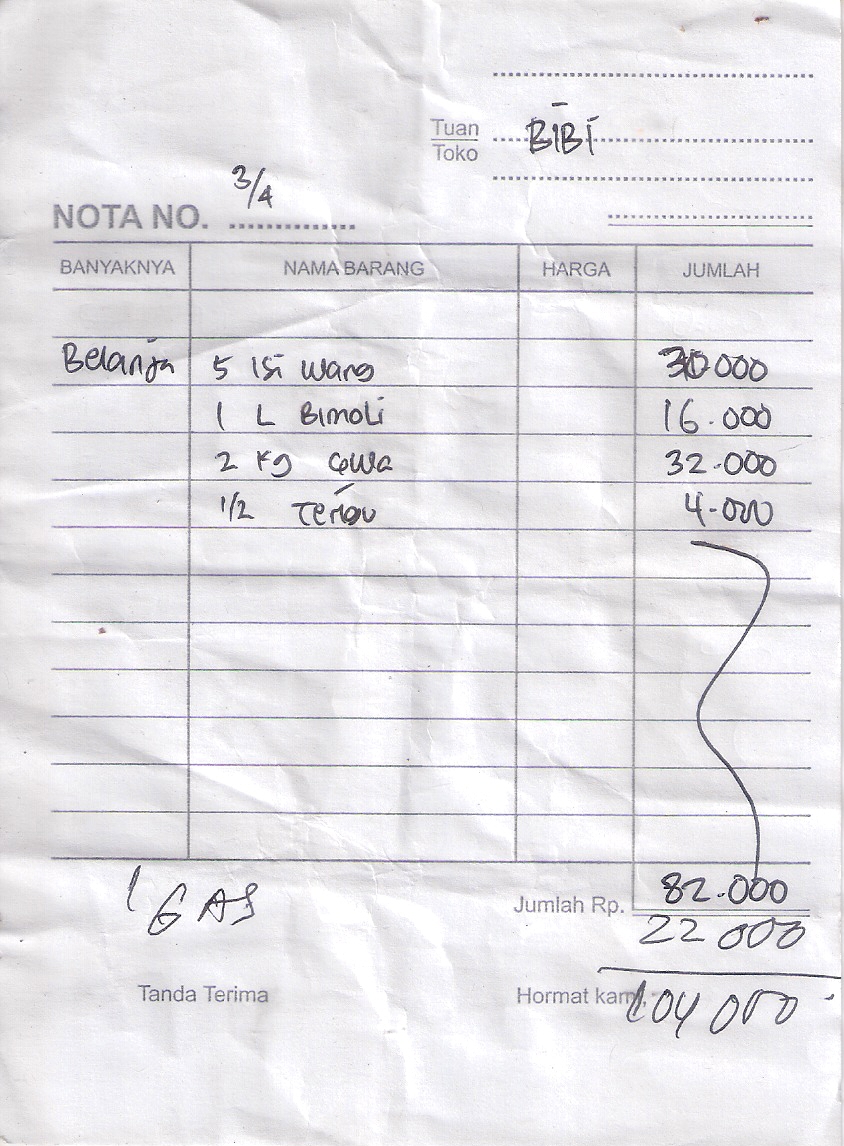 Tuan BIBI
Toko
3/4
NOTA NO.
BANYAKNYA NAMA BARANG HARGA JUMLAH
Belanja 5 isi 30.000
1 L Bimoli 16.000
2 Kg 32.000
1/2 Terigu 4.000
1 GAS Jumlah Rp. 82.000
22 000
Tanda Terima Hormat kami,
104 000